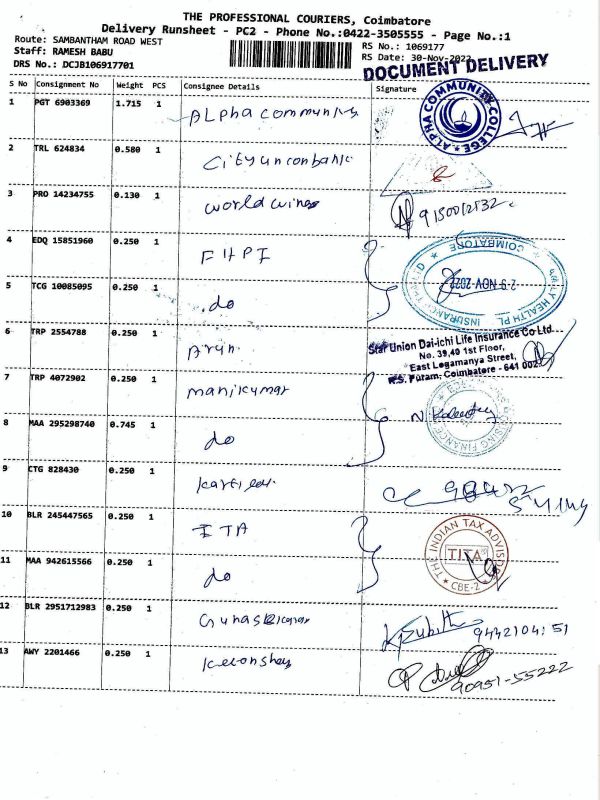 THE PROFESSIONAL COURIERS, Coimbatore
Delivery Runsheet - PC2 - Phone No.:0422-3505555 - Page No.:1
Route: SAMBANTHAM ROAD WEST
RS No.: 1069177
Staff: RAMESH BABU
RS Date: 30-Nov-2022
DRS No.: DCJB106917701
DOCUMENT DELIVERY
S No Consignment No Weight PCS Consignee Details Signature
1 PGT 6903369 1.715 1 Alpha community
ALPHA COMMUNITY COLLEGE
2 TRL 624834 0.580 1 city union bank
3 PRO 14234755 0.130 1 world wings
4 EDQ 15851960 0.250 1 FHPI
COIMBATORE
29 NOV 2022
HEALTH
INSURANCE
5 TCG 10085095 0.250 1 do
6 TRP 2554788 0.250 1 Arun
Star Union Dai-ichi Life Insurance Co Ltd
No. 39,40 1st Floor,
East Logamanya Street,
R.S. Puram, Coimbatore - 641 002.
7 TRP 4072902 0.250 1 manikumar
8 MAA 295298740 0.745 1 do
HOUSING FINANCE
9 CTG 828430 0.250 1
10 BLR 245447565 0.250 1 ITA
THE INDIAN TAX ADVISOR
TITA
CBE-2
11 MAA 942615566 0.250 1 do
12 BLR 2951712983 0.250 1
13 AWY 2201466 0.250 1
90951-55222